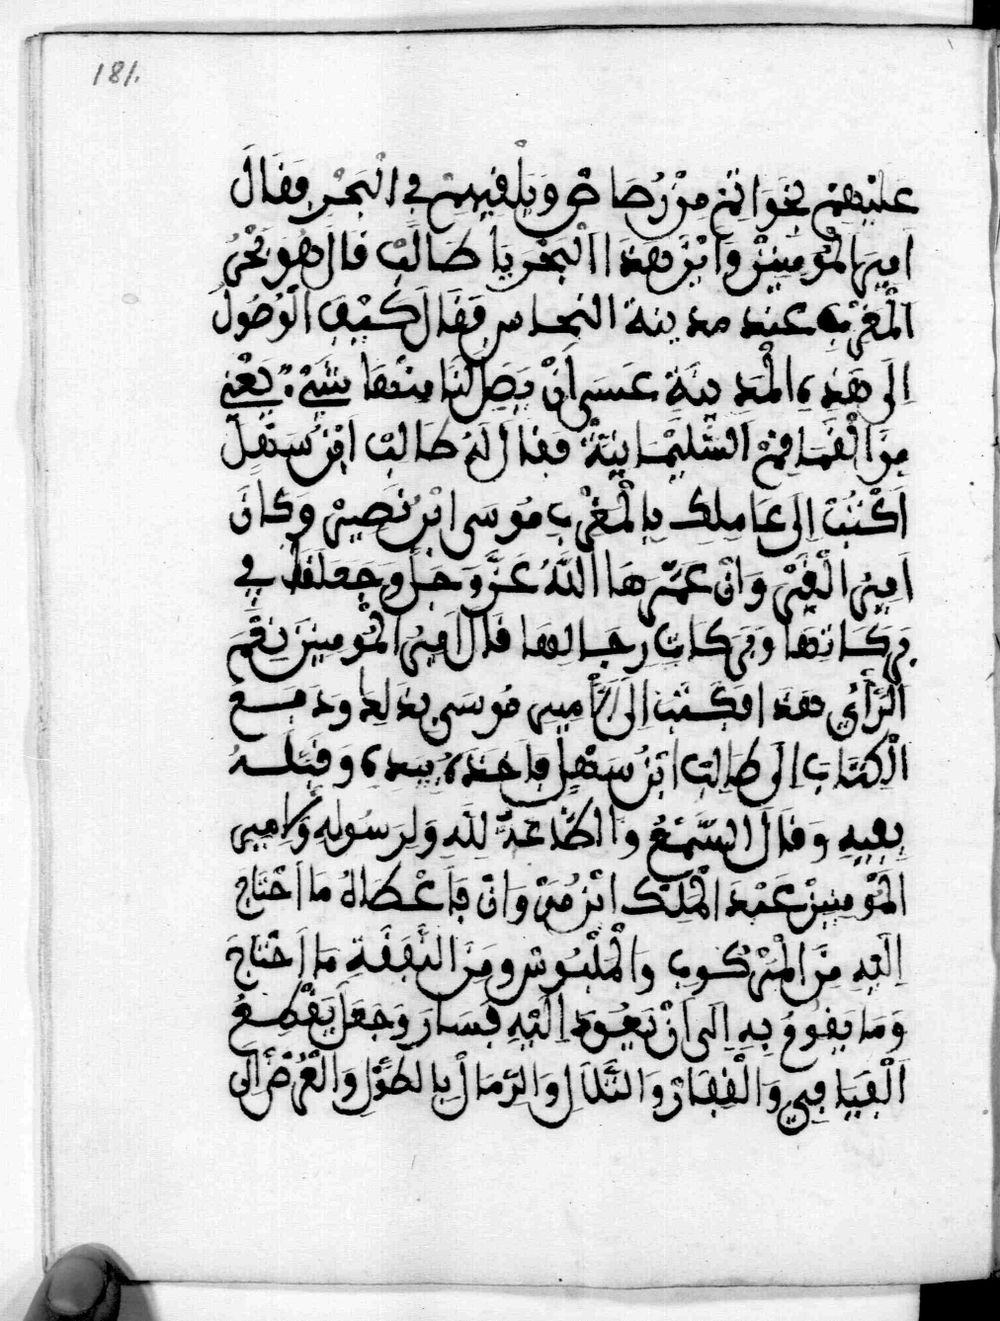 181.
عَلَيْهِمْ بِخَوَاتِمْ مِنْ رُصَاصْ وَيُلْقِيهِمْ فِي الْبَحْرِ فَقَالَ
امِير الْمُومِنِينْ وَايْنَ هَذَا الْبَحْر يَا طَالِبْ قَالَ هُوَ بَحْرُ
الْمَغْرِبِ عِند مدينة النحاس فَقَالَ كَيْفِ الْوُصُولُ
الَى هَذِهِ الْمَدِينَةِ عَسَى اَنْ يَصِلَ لَنَا مِنْهَا شَيْءٌ يَعْنِي
مِنَ الْقَمَاقِمْ السُّلَيْمَانِيَّةْ فقَالَ لَهُ طَالِبْ ابْنُ سَهْلْ
اَكْتُبْ اِلَى عَامِلِكَ بِالْمَغْرِبِ مُوسَى ابْنُ نُصَيْرْ وَكَانَ
امِيرُ الْقَيْرَوَانْ عَمَّرَهَا اللَّهُ عَزَّ وَجَلَّ وَجَعَلَنَا فِي
بَرَكَاتِهَا وَبَرَكَاتِ رِجَالِهَا قَالَ امِيرُ الْمُومِنِينَ نِعْمَ
الرَّأْيُ هَذَا فَكَتَبَ اِلَى الْأَمِيرِ مُوسَى بِذَلِكَ وَدَفَعَ
الْكِتَابَ اِلَى طَالِبْ ابْنُ سَهْلْ فَاَخَذَهُ بِيَدِهِ وَقَبَّلَهُ
بِفِيهِ وَقَالَ السَّمْعُ وَالطَّاعَةُ لِلَّهِ وَلِرَسُولِهِ وَلِامِيرِ
الْمُومِنِينْ عَبْدَ الْمَلِكْ ابْنُ مَرْوَانْ فَاَعْطَاهُ مَا احْتَاجَ
اِلَيْهِ مِنَ الْمَرْكُوبِ وَالْمَلْبُوسْ وَمِنَ النَّفَقَةِ مَا احْتَاجَ
وَمَا يَقُومُ بِهِ اِلَى اَنْ يَعُودَ اِلَيْهِ فَسَارَ وَجَعَلَ يَقْطَعُ
الْفَيَافِي وَالْقِفَارْ وَالتِّلَالِ وَالرِّمَالْ بِالطُّولِ وَالْعُرْضْ اِلَى